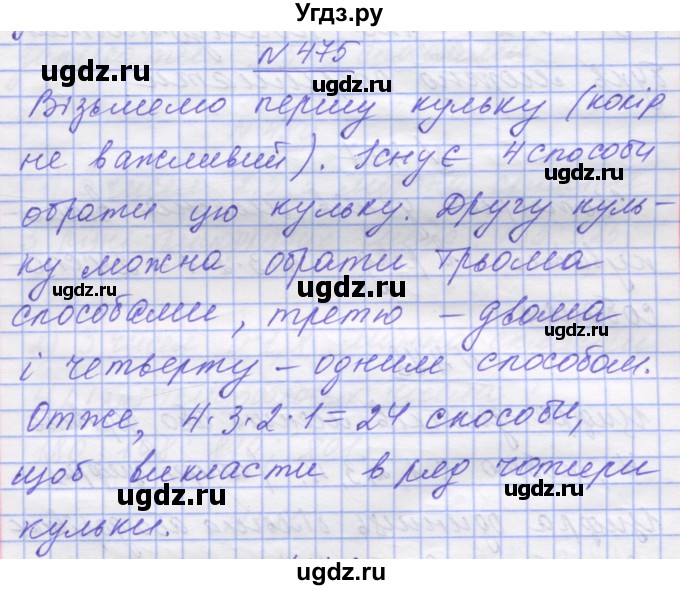 Угдз.ру
N 475
Візьмемо першу кульку (колір
не важливий). Існує 4 способи
обрати цю кульку. Другу куль-
ку можна обрати трьома
способами, третю – двома
і четверту – одним способом.
Отже, 4·3·2·1=24 способи,
щоб викласти в ряд чотири
кульки.
ugdz.ru
ugdz.ru
ugdz.ru
ugdz.ru
ugdz.ru
ugdz.ru
ugdz.ru
ugdz.ru
ugdz.ru
ugdz.ru
ugdz.ru
ugdz.ru
ugdz.ru
ugdz.ru